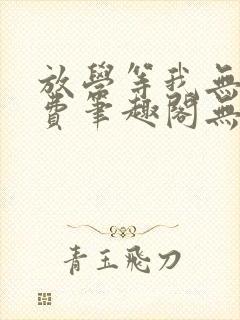 放學等我無
費筆趣閣無
青玉飛刀